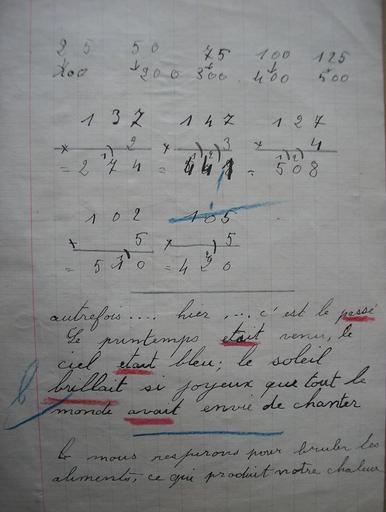 25 50 75 100 125
200 200 300 400 500
137 147 127
× 2 × 3 × 4
= 274 = 441 = 508
102 105
× 5 × 5
= 510 = 420
autrefois .... hier, ... c'est le passé
Le printemps était venu, le
ciel était bleu ; le soleil
brillait si joyeux que tout le
monde avait envie de chanter
nous respirons pour bruler les
aliments, ce qui produit notre chaleur